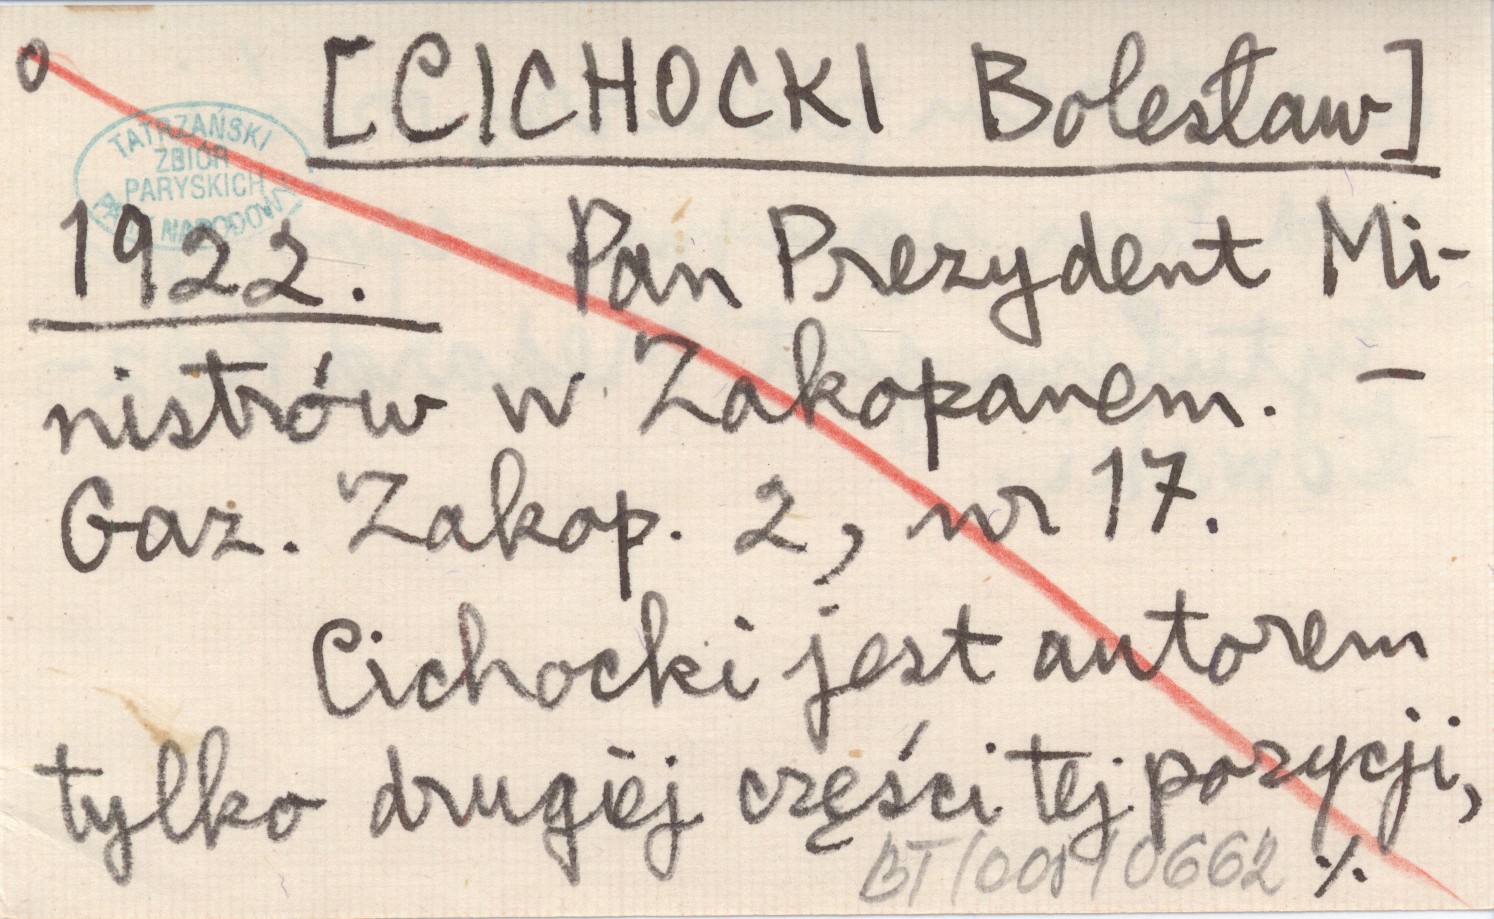 o [CICHOCKI Bolesław]
TATRZAŃSKI
ZBIÓR
PARYSKICH
NARODOW
1922. Pan Prezydent Mi-
nistrów w Zakopanem. –
Gaz. Zakop. 2, nr 17.
Cichocki jest autorem
tylko drugiej części tej pozycji,
BT/001/0662 ./.